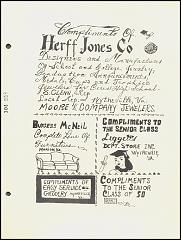 Compliments Of
Herff Jones Co
Designers and Manufacturers
Of School and College Jewelry
Graduation Announcements
Medals, Cups and Trophies
Jewelers for Chas. High School
Local Rep. - Wytheville, Va.
MOORE & COMPANY JEWELERS
Burgess McNeil
Complete Line Of
Furniture
COMPLIMENTS OF
EASY SERVICE
GROCERY
COMPLIMENTS TO
THE SENIOR CLASS
Leggetts
DEPT. STORE INC.
WYTHEVILLE,
VA.
COMPLIMENTS
TO THE SENIOR
CLASS OF 50